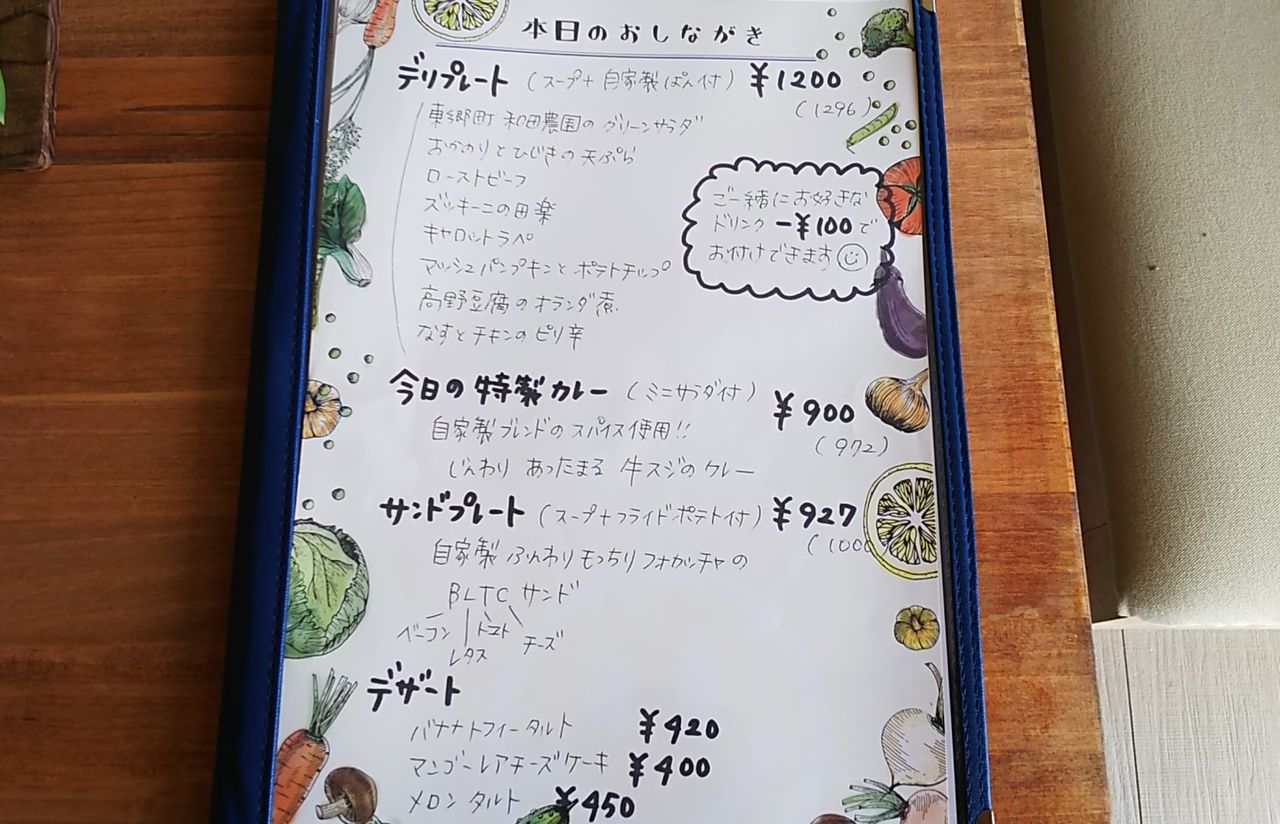 本日のおしながき
デリプレート (スープ+自家製ぱん付) ¥1200
(1296)
東郷町 和田農園のグリーンサラダ
おかのりとひじきの天ぷら
ローストビーフ
ズッキーニの田楽
キャロットラペ
マッシュパンプキンとポテトチップ
高野豆腐のオランダ煮
なすとチキンのピリ辛
ご一緒にお好きな
ドリンク -¥100で
お付けできます
今日の特製カレー (ミニサラダ付) ¥900
(972)
自家製ブレンドのスパイス使用!!
じんわり あったまる 牛スジのカレー
サンドプレート (スープ+フライドポテト付) ¥927
(1000
自家製 ふんわりもっちりフォカッチャの
BLTCサンド
ベーコン トマト チーズ
レタス
デザート
バナナトフィータルト ¥420
マンゴーレアチーズケーキ ¥400
メロンタルト ¥450